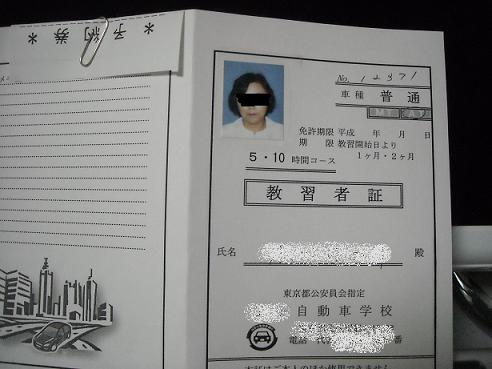 ＊予約券＊
No. 12371
車種 普通
MT AT
免許期限 平成 年 月 日
期 限 教習開始日より
1ヶ月・2ヶ月
5・10 時間コース
教習者証
氏名 殿
東京都公安員会指定
自動車学校
電話 番